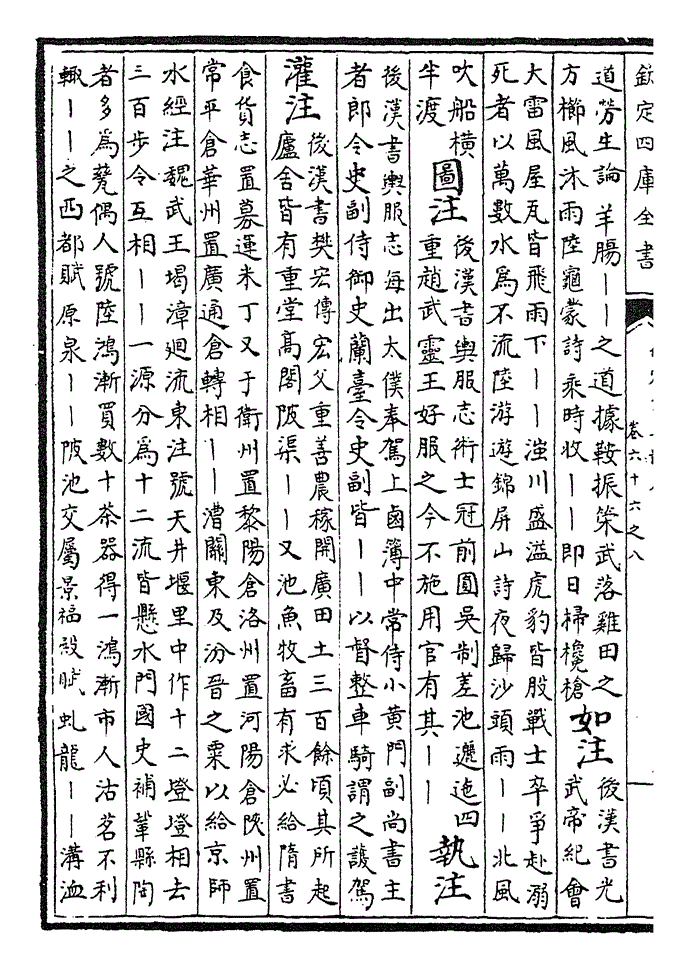 欽定四庫全書
卷六十六之八
道勞生論羊腸——之道據鞍振策武落雞田之
方櫛風沐雨陸龜蒙詩乘時收——即日掃欃槍
如注
後漢書光
武帝紀會
大雷風屋瓦皆飛雨下——滍川盛溢虎豹皆股戰士卒爭赴溺
死者以萬數水為不流陸游遊錦屏山詩夜歸沙頭雨——北風
吹船橫
半渡
圖注
後漢書輿服志術士冠前圓吳制差池邐迤四
重趙武靈王好服之今不施用官有其——
執注
後漢書輿服志每出太僕奉駕上鹵簿中常侍小黃門副尚書主
者郎令史副侍御史蘭臺令史副皆——以督整車騎謂之護駕
灌注
後漢書樊宏傳宏父重善農稼開廣田土三百餘頃其所起
廬舍皆有重堂高閣陂渠——又池魚牧畜有求必給隋書
食貨志置募運米丁又于衛州置黎陽倉洛州置河陽倉陜州置
常平倉華州置廣通倉轉相——漕關東及汾晉之粟以給京師
水經注魏武王堨漳廻流東注號天井堰里中作十二墱墱相去
三百步令互相——一源分為十二流皆懸水門國史補鞏縣陶
者多為甆偶人號陸鴻漸買數十茶器得一鴻漸市人沽茗不利
輒——之西都賦原泉——陂池交屬景福殿賦虬龍——溝洫